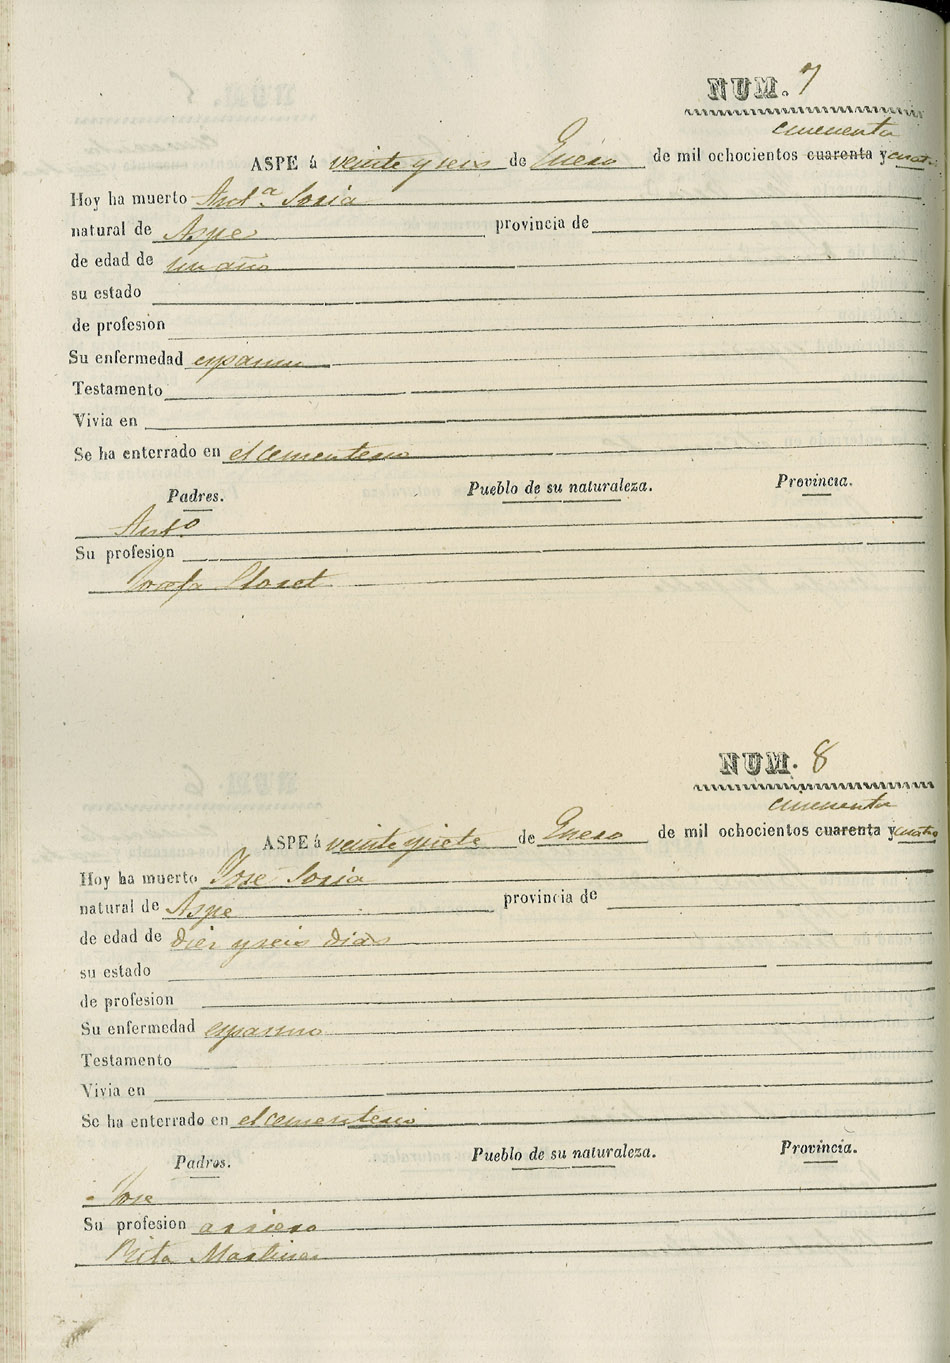 NUM. 7
cincuenta
ASPE á veinte y seis de Enero de mil ochocientos cuarenta y cuatro
Hoy ha muerto Ant.ª Soria
natural de Aspe provincia de
de edad de un año
su estado
de profesion
Su enfermedad espasmo
Testamento
Vivia en
Se ha enterrado en el cementerio
Padres. Pueblo de su naturaleza. Provincia.
Ant.º
Su profesion
Josefa
NUM. 8
cincuenta
ASPE á veinte y siete de Enero de mil ochocientos cuarenta y cuatro
Hoy ha muerto Jose Soria
natural de Aspe provincia de
de edad de diez y seis dias
su estado
de profesion
Su enfermedad espasmo
Testamento
Vivia en
Se ha enterrado en el cementerio
Padres. Pueblo de su naturaleza. Provincia.
Jose
Su profesion arriero
Rita Martinez